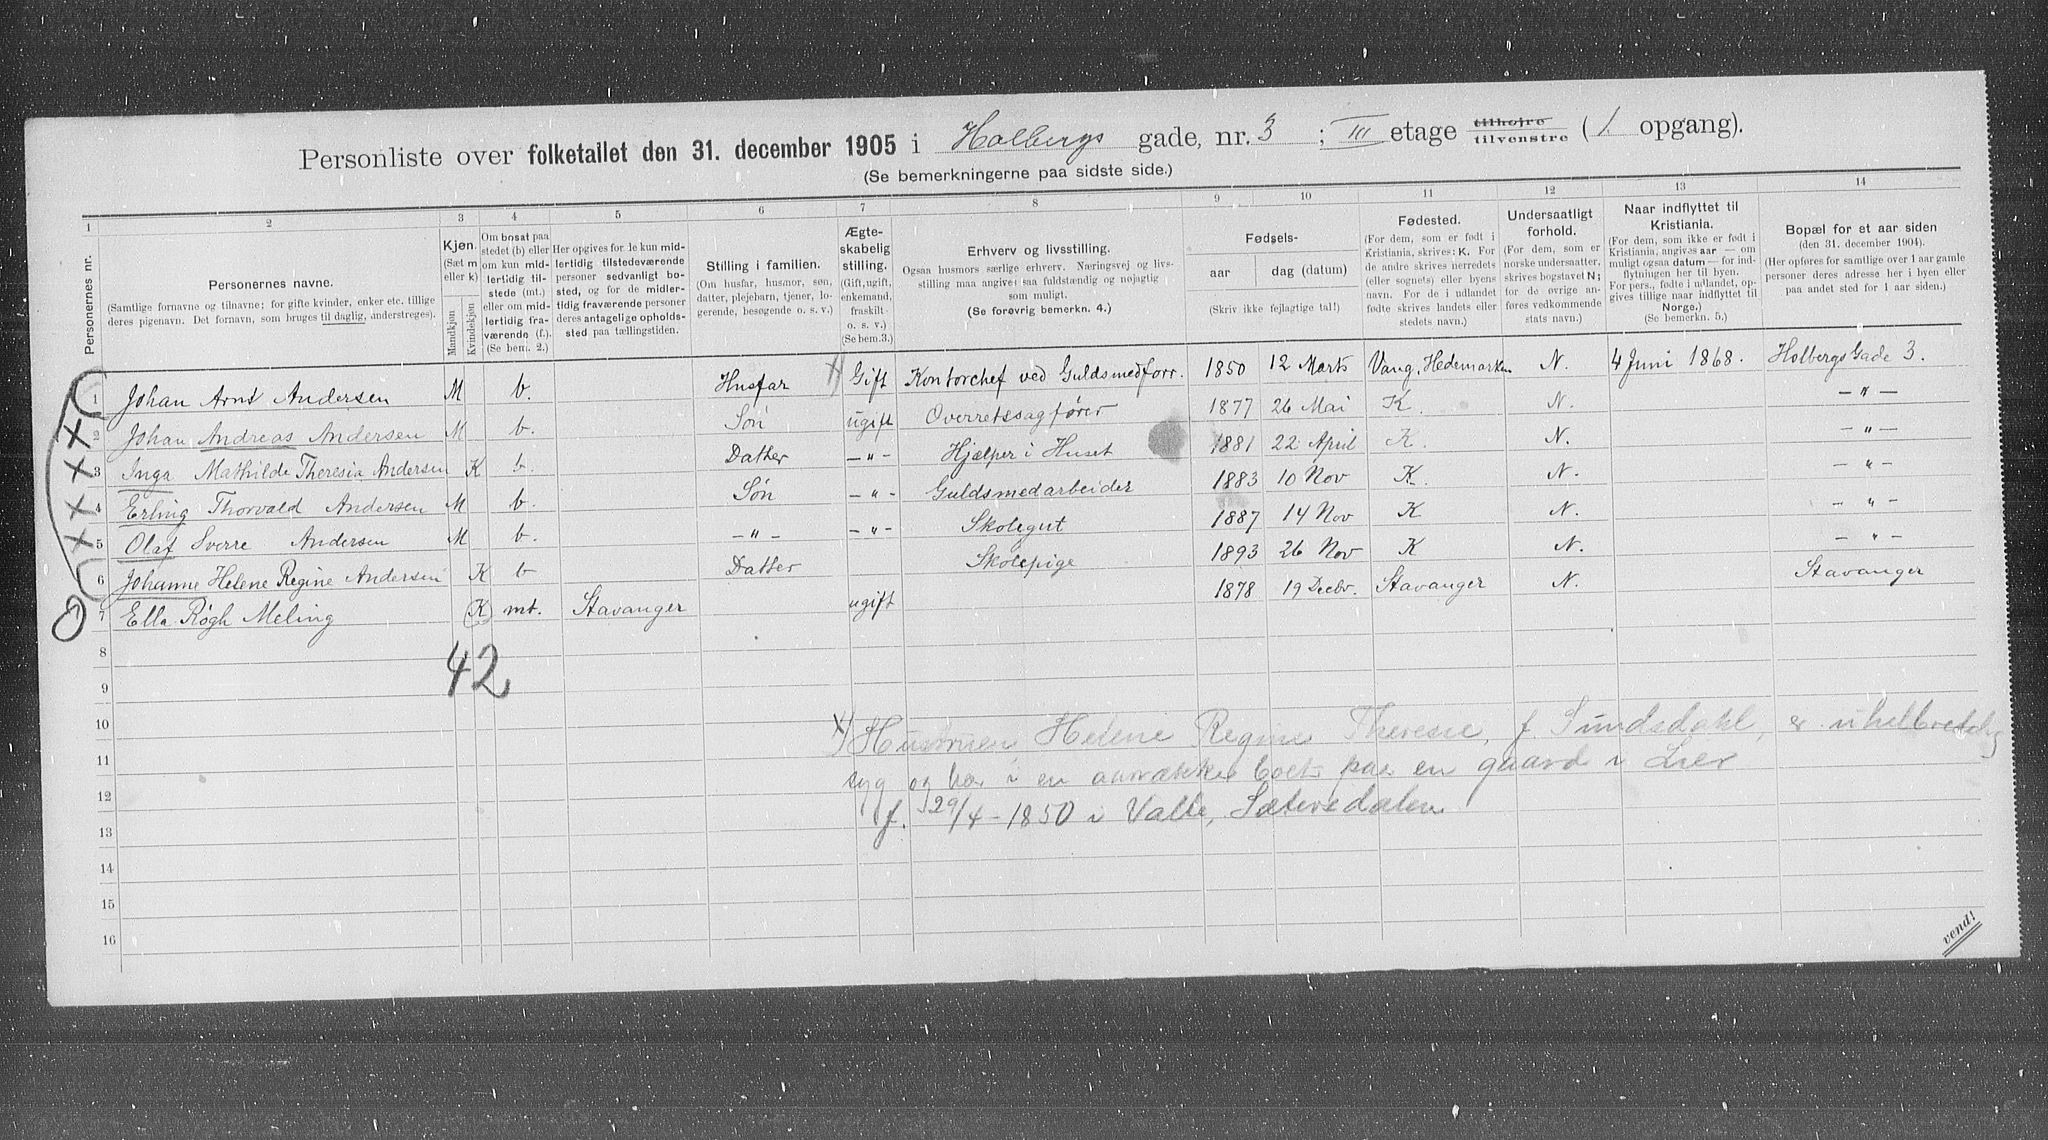 Personliste over folketallet den 31. december 1905 i Holbergs gade, nr. 3 ; III etage tilhøjre / tilvenstre ( 1. opgang).
(Se bemerkningerne paa sidste side.)
1 2 3 4 5 6 7 8 9 10 11 12 13 14
Personernes nr.
Personernes navne.
(Samtlige fornavne og tilnavne; for gifte kvinder, enker etc. tillige deres pigenavn. Det fornavn, som bruges til daglig, understreges).
Kjøn. (Sæt m eller k)
Mandkjøn
Kvindekjøn
Om bosat paa stedet (b) eller om kun midlertidig tilstede (mt.) eller om midlertidig fraværende (f.) (Se bem. 2.)
Her opgives for de kun midlertidig tilstedeværende personer sedvanligt bosted, og for de midlertidig fraværende personer deres antagelige opholdssted paa tællingstiden.
Stilling i familien.
(Om husfar, husmor, søn, datter, plejebarn, tjener, logerende, besøgende o. s. v.)
Ægteskabelig stilling.
(Gift, ugift, enkemand, fraskilt o. s. v.)
(Se bem.3.)
Erhverv og livsstilling.
Ogsaa husmors særlige erhverv. Næringsvej og livsstilling maa angives saa fuldstændig og nøjagtig som muligt.
(Se forøvrig bemerkn. 4.)
Fødsels-
aar
dag (datum)
(Skriv ikke fejlagtige tal!)
Fødested.
(For dem, som er født i Kristiania, skrives: K. For de andre skrives herredets (eller sognets) eller byens navn. For de i udlandet fødte skrives landets eller stedets navn.)
Undersaatligt forhold.
(For dem, som er norske undersaatter, skrives bogstavet N; for de øvrige anføres vedkommende stats navn.)
Naar indflyttet til Kristiania.
(For dem, som ikke er født i Kristiania, angives aar — om muligt ogsaa datum — for indflytningen her til byen. For pers., fødte i udlandet, opgives tillige naar indflyttet til Norge.)
(Se bemerkn. 5.)
Bopæl for et aar siden
(den 31. december 1904).
(Her opføres for samtlige over 1 aar gamle personer deres adresse her i byen eller paa andet sted for 1 aar siden.)
1 Johan Arnt Andersen M b. Husfar x) Gift Kontorchef ved Guldsmedforr. 1850 12 Marts Vang, Hedemarken N. 4 Juni 1868. Holbergs Gade 3.
2 Johan Andreas Andersen M b. Søn ugift Overretssagfører 1877 26 Mai K. N. — " —
3 Inga Mathilde Theresia Andersen K b. Datter — " — Hjælper i Huset 1881 22 April K. N. — " —
4 Erling Thorvald Andersen M b. Søn — " — Guldsmedarbeider 1883 10 Nov K. N. — " —
5 Olaf Sverre Andersen M b. — " — — " — Skolegut 1887 14 Nov K N. — " —
6 Johanne Helene Regine Andersen K b Datter Skolepige 1893 26 Nov K N. — " —
7 Ella Røgh Meling K mt. Stavanger ugift 1878 19 Decbr. Stavanger N. Stavanger
8
42
9
10 x) Hustruen Helene Regine Theresie, f Sundsdahl, er uhelbredelig
11 syg og har i en aarrække boet paa en gaard i Lier
12 f. 29/4 - 1850 i Valle, Sætersdalen
13
14
15
16
vend!